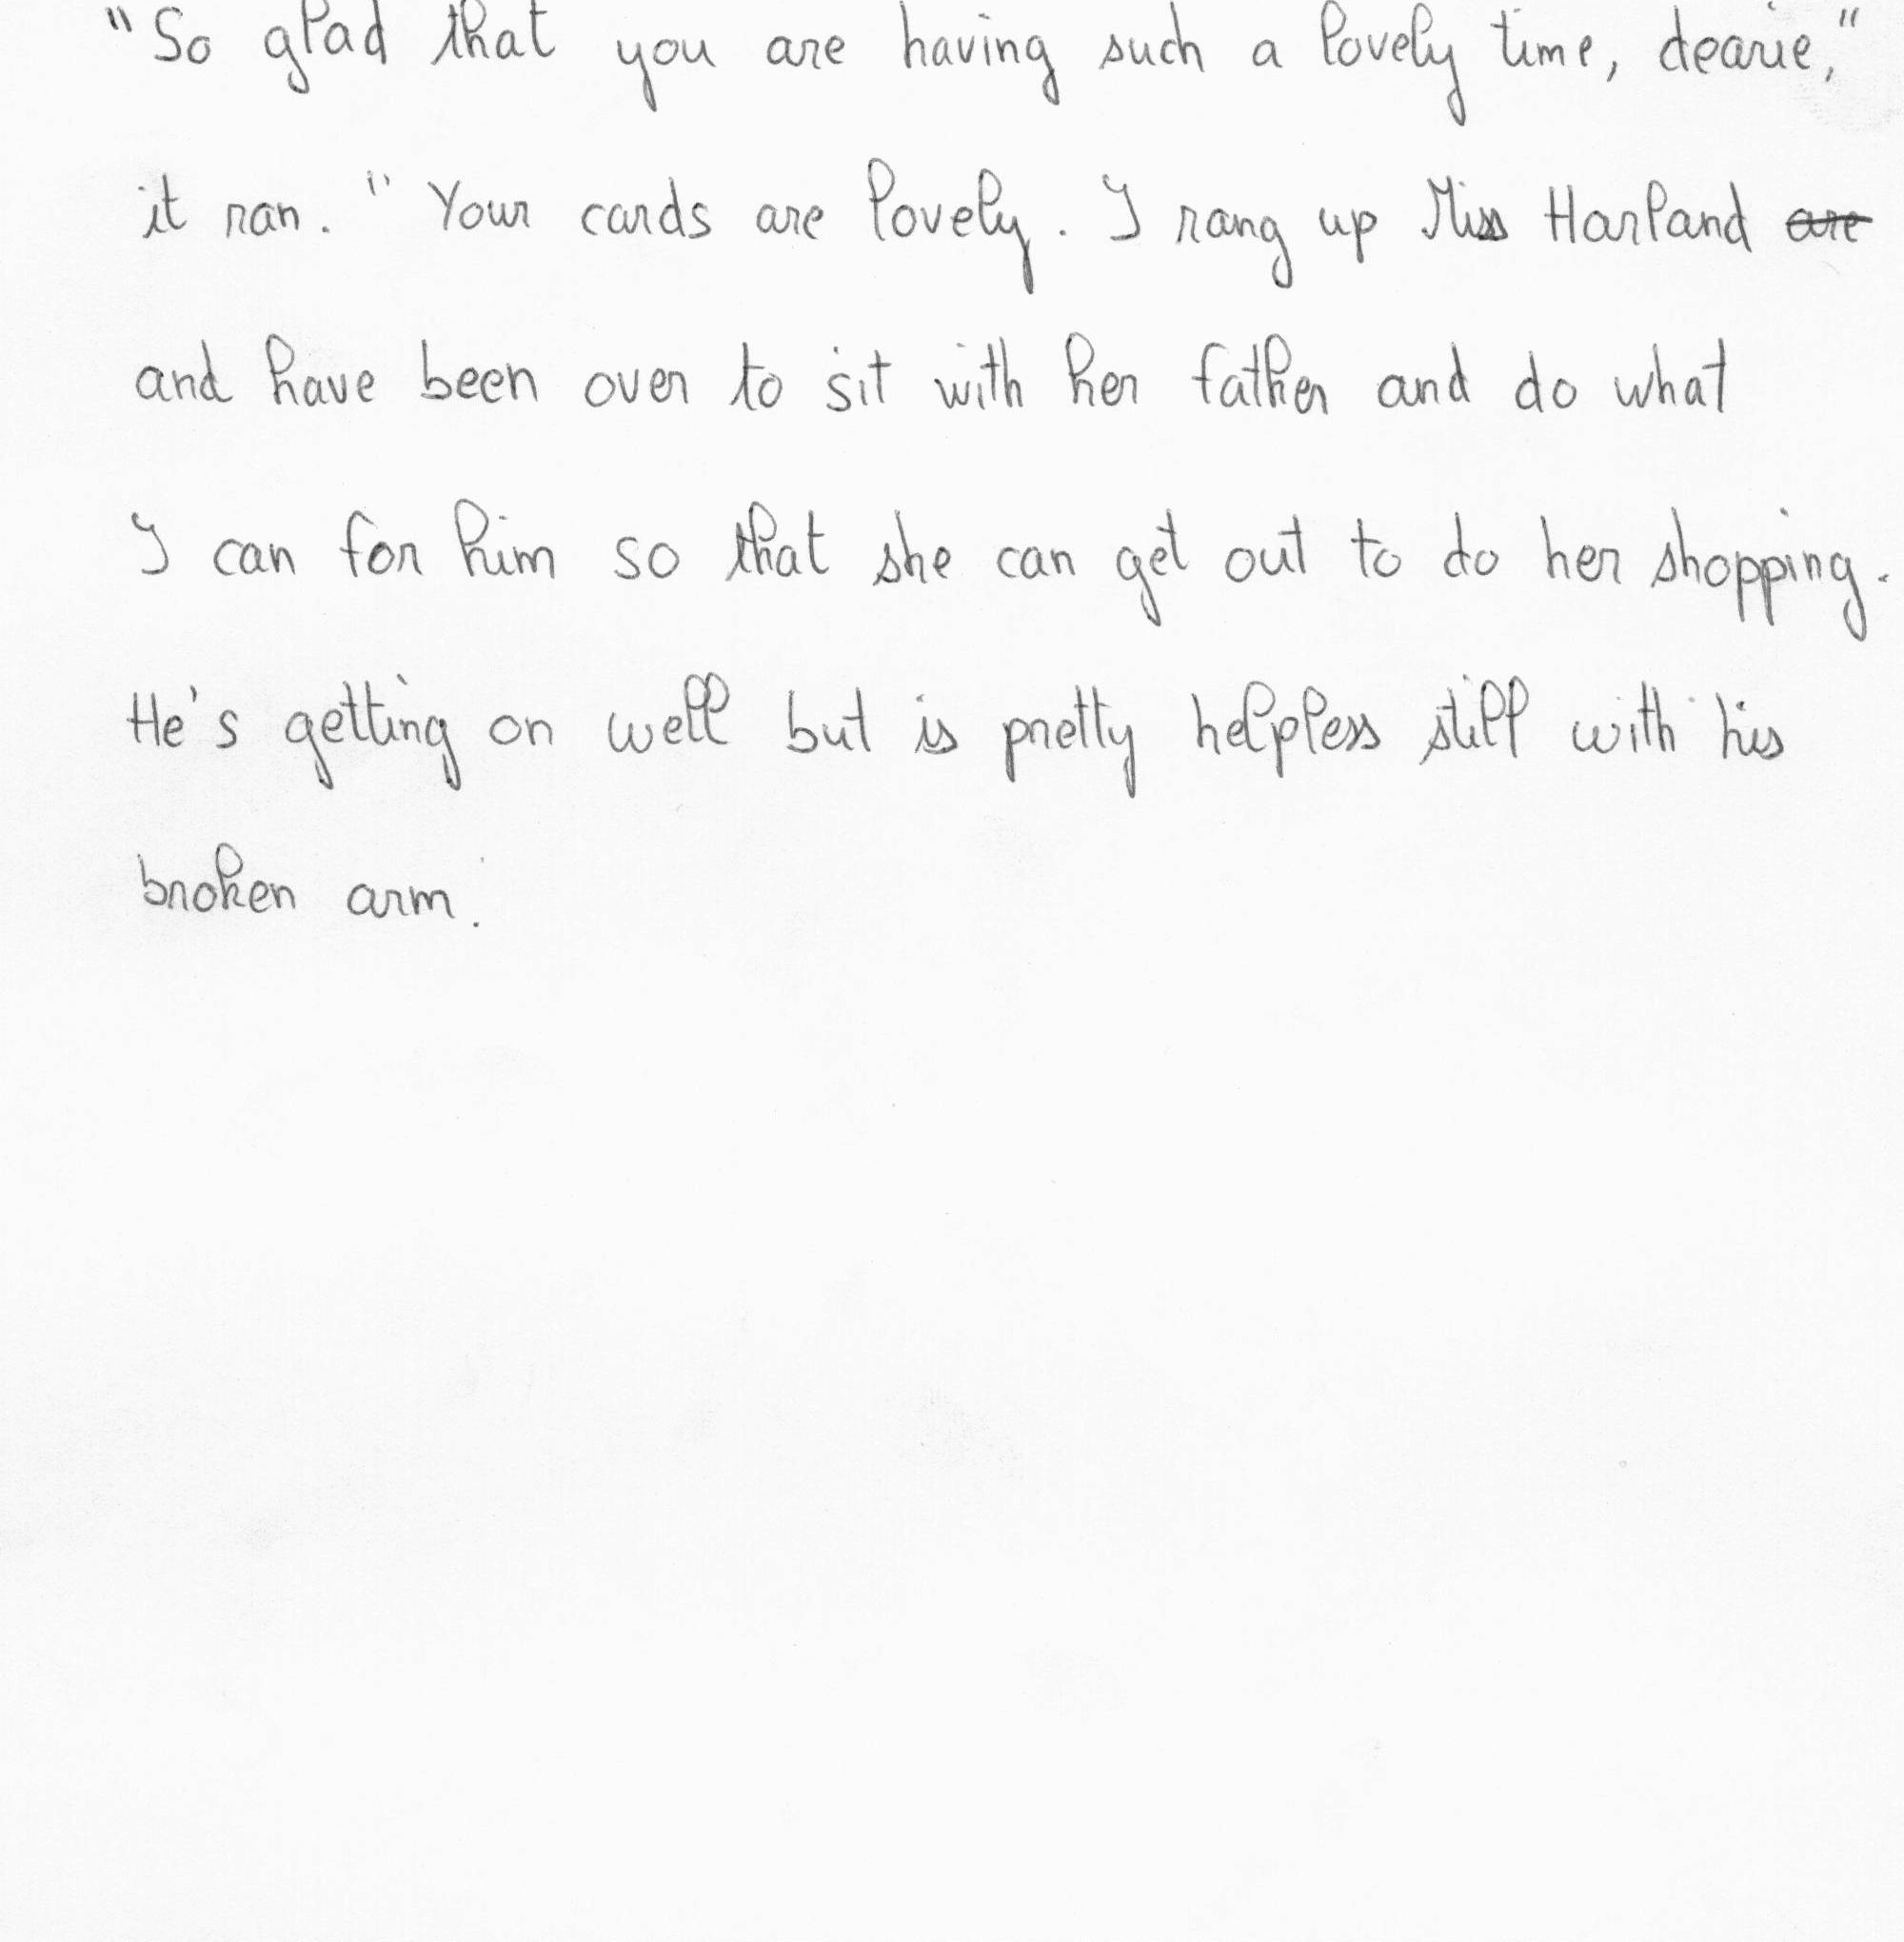 "So glad that you are having such a lovely time, dearie,"
it ran. "Your cards are lovely. I rang up Miss Harland ~~are~~
and have been over to sit with her father and do what
I can for him so that she can get out to do her shopping.
He's getting on well but is pretty helpless still with his
broken arm.